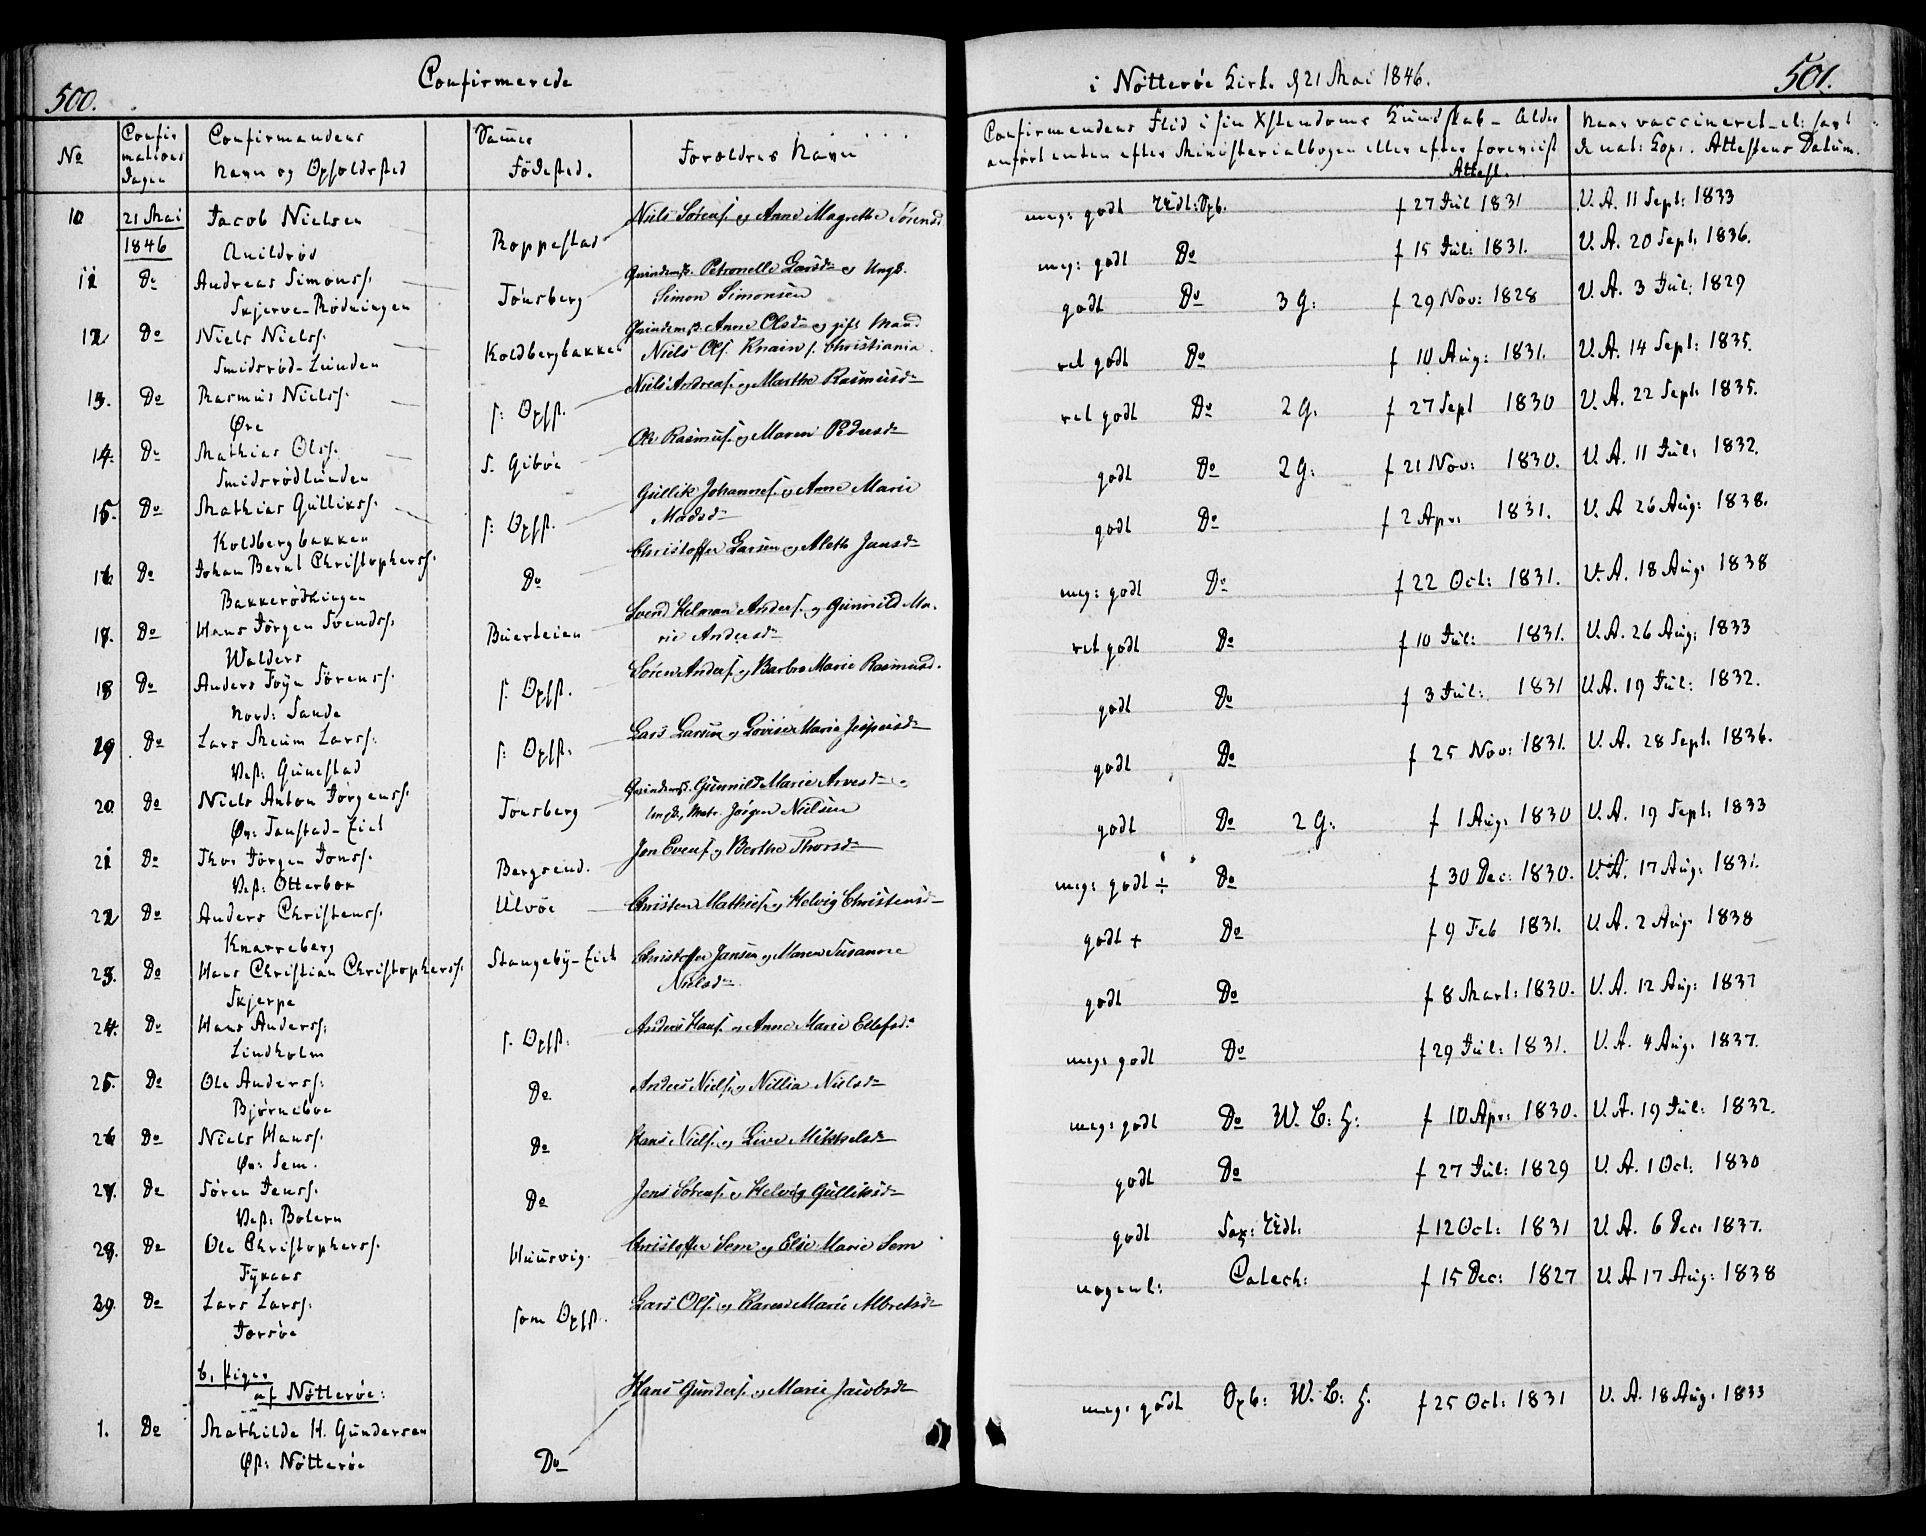 500.
Confirmerede
No
Confir
mations
Dagen
Confirmandens
Navn og Opholdssted
Sammes
Födested.
Forældres Navn
10 21 Mai Jacob Nielsen
1846
Roppestad
Niels Sörens. og Anne Magrethe Sörensd
11 Do Andreas Simonss.
Skjerve-Rödningen
Tönsberg
Qvindemsk. Petronelle Larsd og Ungk.
Simon Simonsen
12 Do Niels Nielss.
Smidsröd-Lunden
Koldbergbakken
Qvindemsk. Anne Olsd og gift Mand
Niels Ols. Knain f. Christiania
13. Do Rasmus Nielss.
Öre
s: Opsst.
Niels Andreas. og Marthe Rasmusd
14. Do Mathias Olss.
Smidsrödlunden
s. Giböe
Ole Rasmus. og Maren Pedersd
15. Do Mathias Gullikss.
Koldbergbakken
s: Opsst.
Gullik Johannes. og Anne Marie
Madsd
16 Do Johan Bernt Christopherss.
Bakkerödningen
Do
Christoffer Larsen og Alethe Jansd
17. Do Hans Jörgen Svendss.
Walders
Buerteien
Svend Helman Anders. og Gunnild Ma-
rie Andersd
18 Do Anders Foyn Sörenss.
Nord: Sande
s. Opsst.
Sören Anders. og Barbro Marie Rasmusd.
19 Do Lars Meum Larss.
Vest: Gunestad
s: Opsst:
Lars Larsen og Lovise Marie Jespersd
20 Do Niels Anton Jörgenss.
Öv: Tanstad-Eiet
Tönsberg
Qvindemsk. Gunnild Marie Arvesd og
Ungk., Matr. Jörgen Nielsen
21 Do Thor Jörgen Jonss.
Vest: Otterbek
Bergsend.
Jon Evens. og Berthe Thorsd
22 Do Anders Christenss.
Knarreberg
Ulvöe
Christen Mathies. og Helvig Christensd
23. Do Hans Christian Christopherss.
Skjerpe
Stangeby-Eiet
Christoffer Jansen og Maren Susanne
Nielsd
24. Do Hans Anderss:
Lindholm
s. Opsst:
Anders Hans. og Anne Marie Ellefsd.
25. Do Ole Anderss:
Björneboe
Do
Anders Niels. og Nillia Nielsd
26 Do Niels Hanss.
Öv: Sem.
Do
Hans Niels. og Live Mikkelsd
27. Do Sören Jenss.
Vest: Bolern
Do
Jens Sörens. og Helvig Gulliksd
28. Do Ole Christopherss.
Fynaas
Huusvig.
Christoffer Sem og Else Marie Sem
39. Do Lars Larss:
Torsöe
som Opsst.
Lars Ols. og Karen Marie Albretsd
b, Piger
af Nötteröe:
1. Do Mathilde H. Gundersen
Öst: Nötteröe
Do
Hans Gunders. og Marie Jacobsd
i Nötteröe Kirke d 21 Mai 1846.
501.
Confirmendens Flid i sin Xstendoms Kundskab - Alder
anfört enten efter Ministerialbogen eller efter foreviist
Attest.
Naar vaccineret - el: havt
de nat: Kop:. Attestens Datum.
meg: godt Udt: Opb. f 27 Jul 1831 V. A. 11 Sept: 1833
meg: godt Do f 15 Jul: 1831. V. A. 20 Sept. 1836.
godt Do 3 G: f 29 Nov: 1828 V. A. 3 Jul: 1829
ret godt Do f 10 Aug: 1831. V. A. 14 Sept: 1835.
ret godt Do 2 G. f 27 Sept 1830 V. A. 22 Sept: 1835.
godt Do 2 G: f 21 Nov: 1830. V. A. 11 Jul: 1832.
godt Do f 2 Apr: 1831. V. A 26 Aug: 1838.
meg: godt Do f 22 Oct: 1831. V. A. 18 Aug: 1838
ret godt Do f 10 Jul: 1831. V. A. 26 Aug: 1833
godt Do f 3 Jul: 1831 V. A. 19 Jul: 1832.
godt Do f 25 Nov: 1831. V. A. 28 Sept: 1836.
godt Do 2 G: f 1 Aug: 1830 V. A. 19 Sept: 1833
meg: godt ÷ Do f 30 Dec: 1830. V. A. 17 Aug: 1831.
godt + Do f 9 Feb 1831. V. A. 2 Aug. 1838
godt Do f 8 Mart: 1830. V. A. 12 Aug: 1837
meg: godt Do f 29 Jul: 1831. V. A. 4 Aug: 1837.
meg: godt Do W. C: H: f 10 Apr: 1830. V. A. 19 Jul: 1832.
godt Do f 27 Jul: 1829 V. A. 1 Oct: 1830
godt Udt: f 12 Oct: 1831 V. A. 6 Dec: 1837.
nogenl: Catech: f 15 Dec: 1827 V. A 17 Aug: 1838
meg: godt Opb: W. C: H. f 25 Oct: 1831 V. A. 18 Aug: 1833